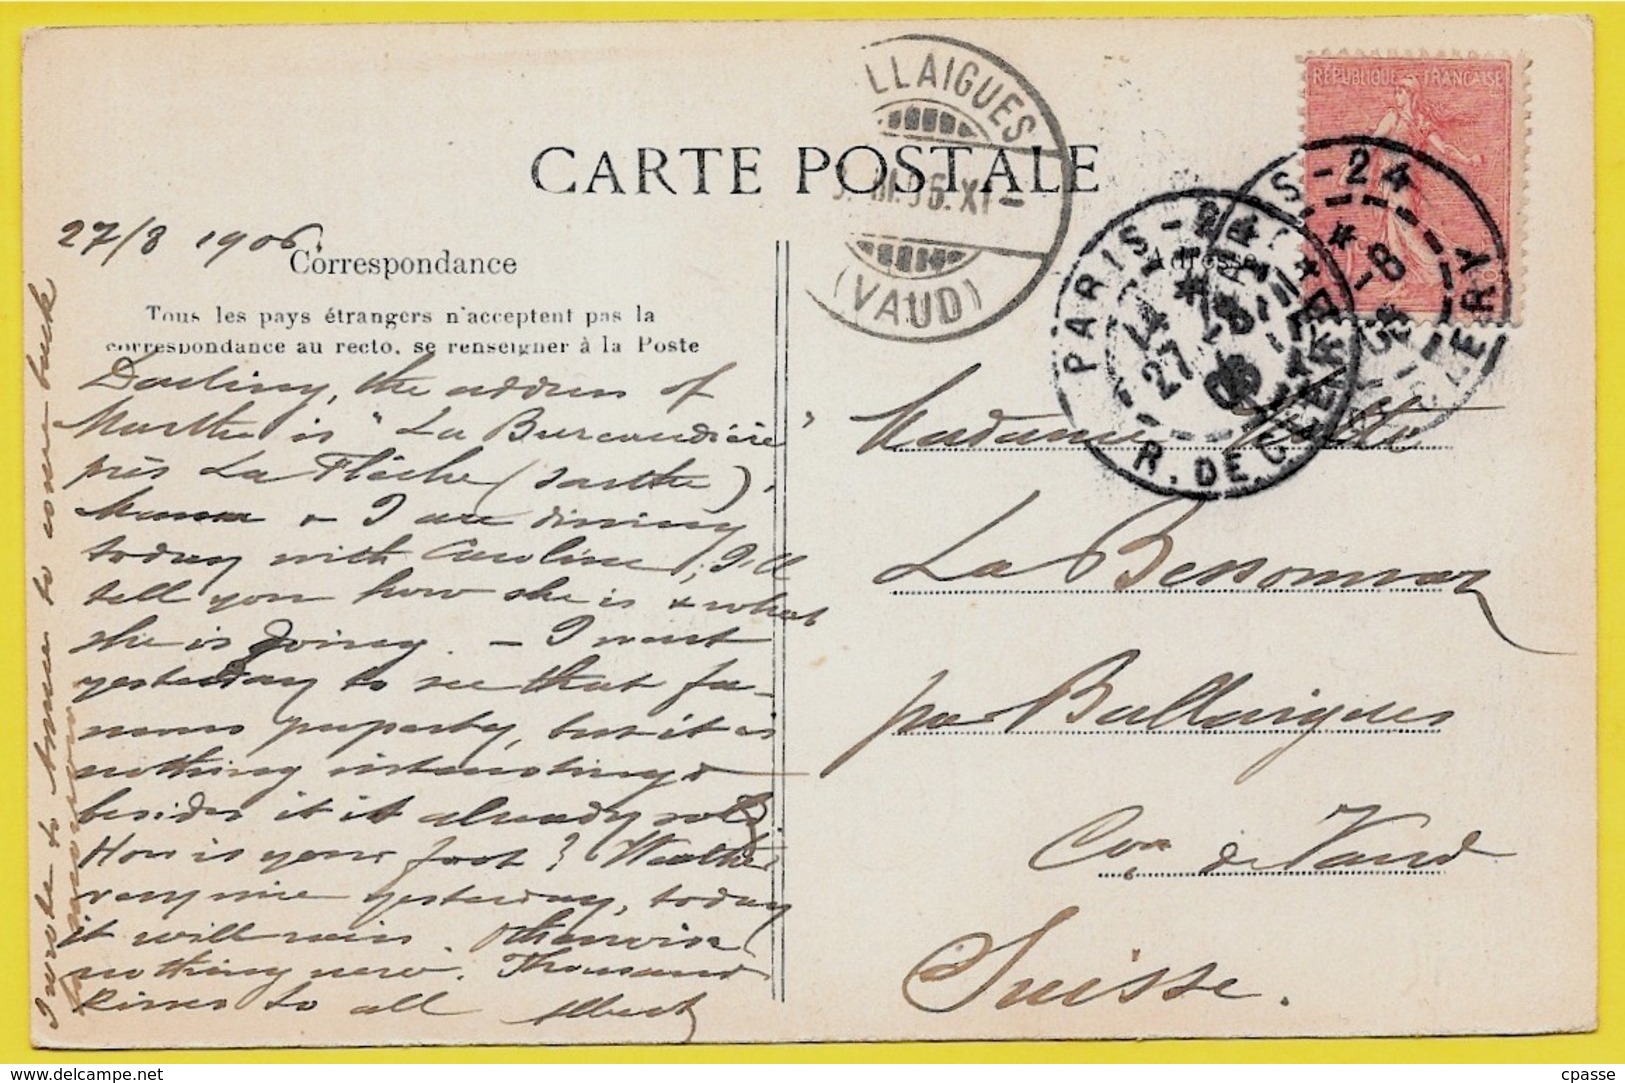 CARTE POSTALE
LLAIGUES
(VAUD)
RÉPUBLIQUE FRANÇAISE
PARIS-24
R. DE CLERY
27
-8
27/8 1906
Correspondance
Adresse
Tous les pays étrangers n'acceptent pas la
correspondance au recto, se renseigner à la Poste
Darling, the address of
Marthe is "La Burcaudière"
près La Flèche (Sarthe).
Mama & I are dining
today with Caroline; I'll
tell you how she is & what
she is going. – I went
yesterday to see that fa-
mous property, but it is
nothing interesting &
besides it is already sold.
How is your foot? Weather
very nice yesterday, today
it will rain. Otherwise
nothing new. Thousand
kisses to all Albert
I wrote to to come back
tomorrow
Madame
La
par Ballaigues
Con de Vaud
Suisse.
cpasse